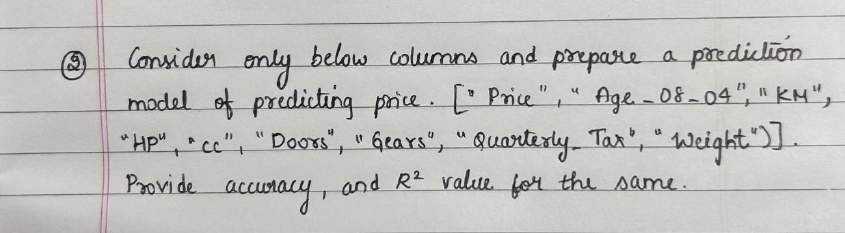 ② Consider only below columns and prepare a prediction
model of predicting price. ["Price", "Age_08_04", "KM",
"HP", "cc", "Doors", "Gears", "Quarterly_Tax", "Weight")].
Provide accuracy, and R² value for the same.